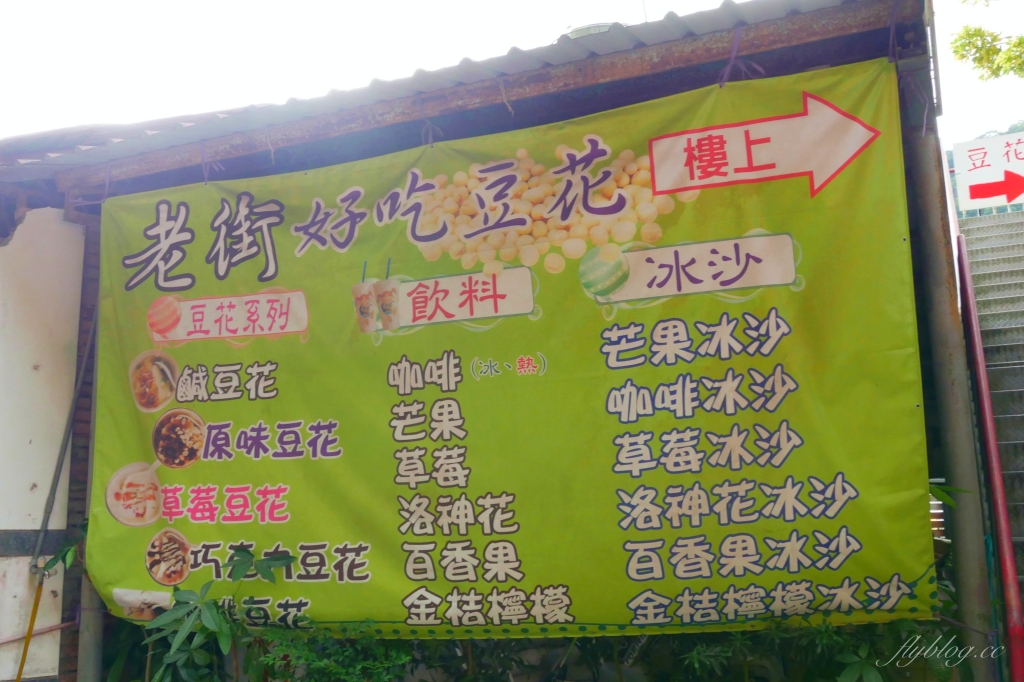 老街好吃豆花
樓上
豆花
豆花系列
鹹豆花
原味豆花
草莓豆花
巧克力豆花
豆花
飲料
咖啡(冰、熱)
芒果
草莓
洛神花
百香果
金桔檸檬
冰沙
芒果冰沙
咖啡冰沙
草莓冰沙
洛神花冰沙
百香果冰沙
金桔檸檬冰沙
flyblog.cc